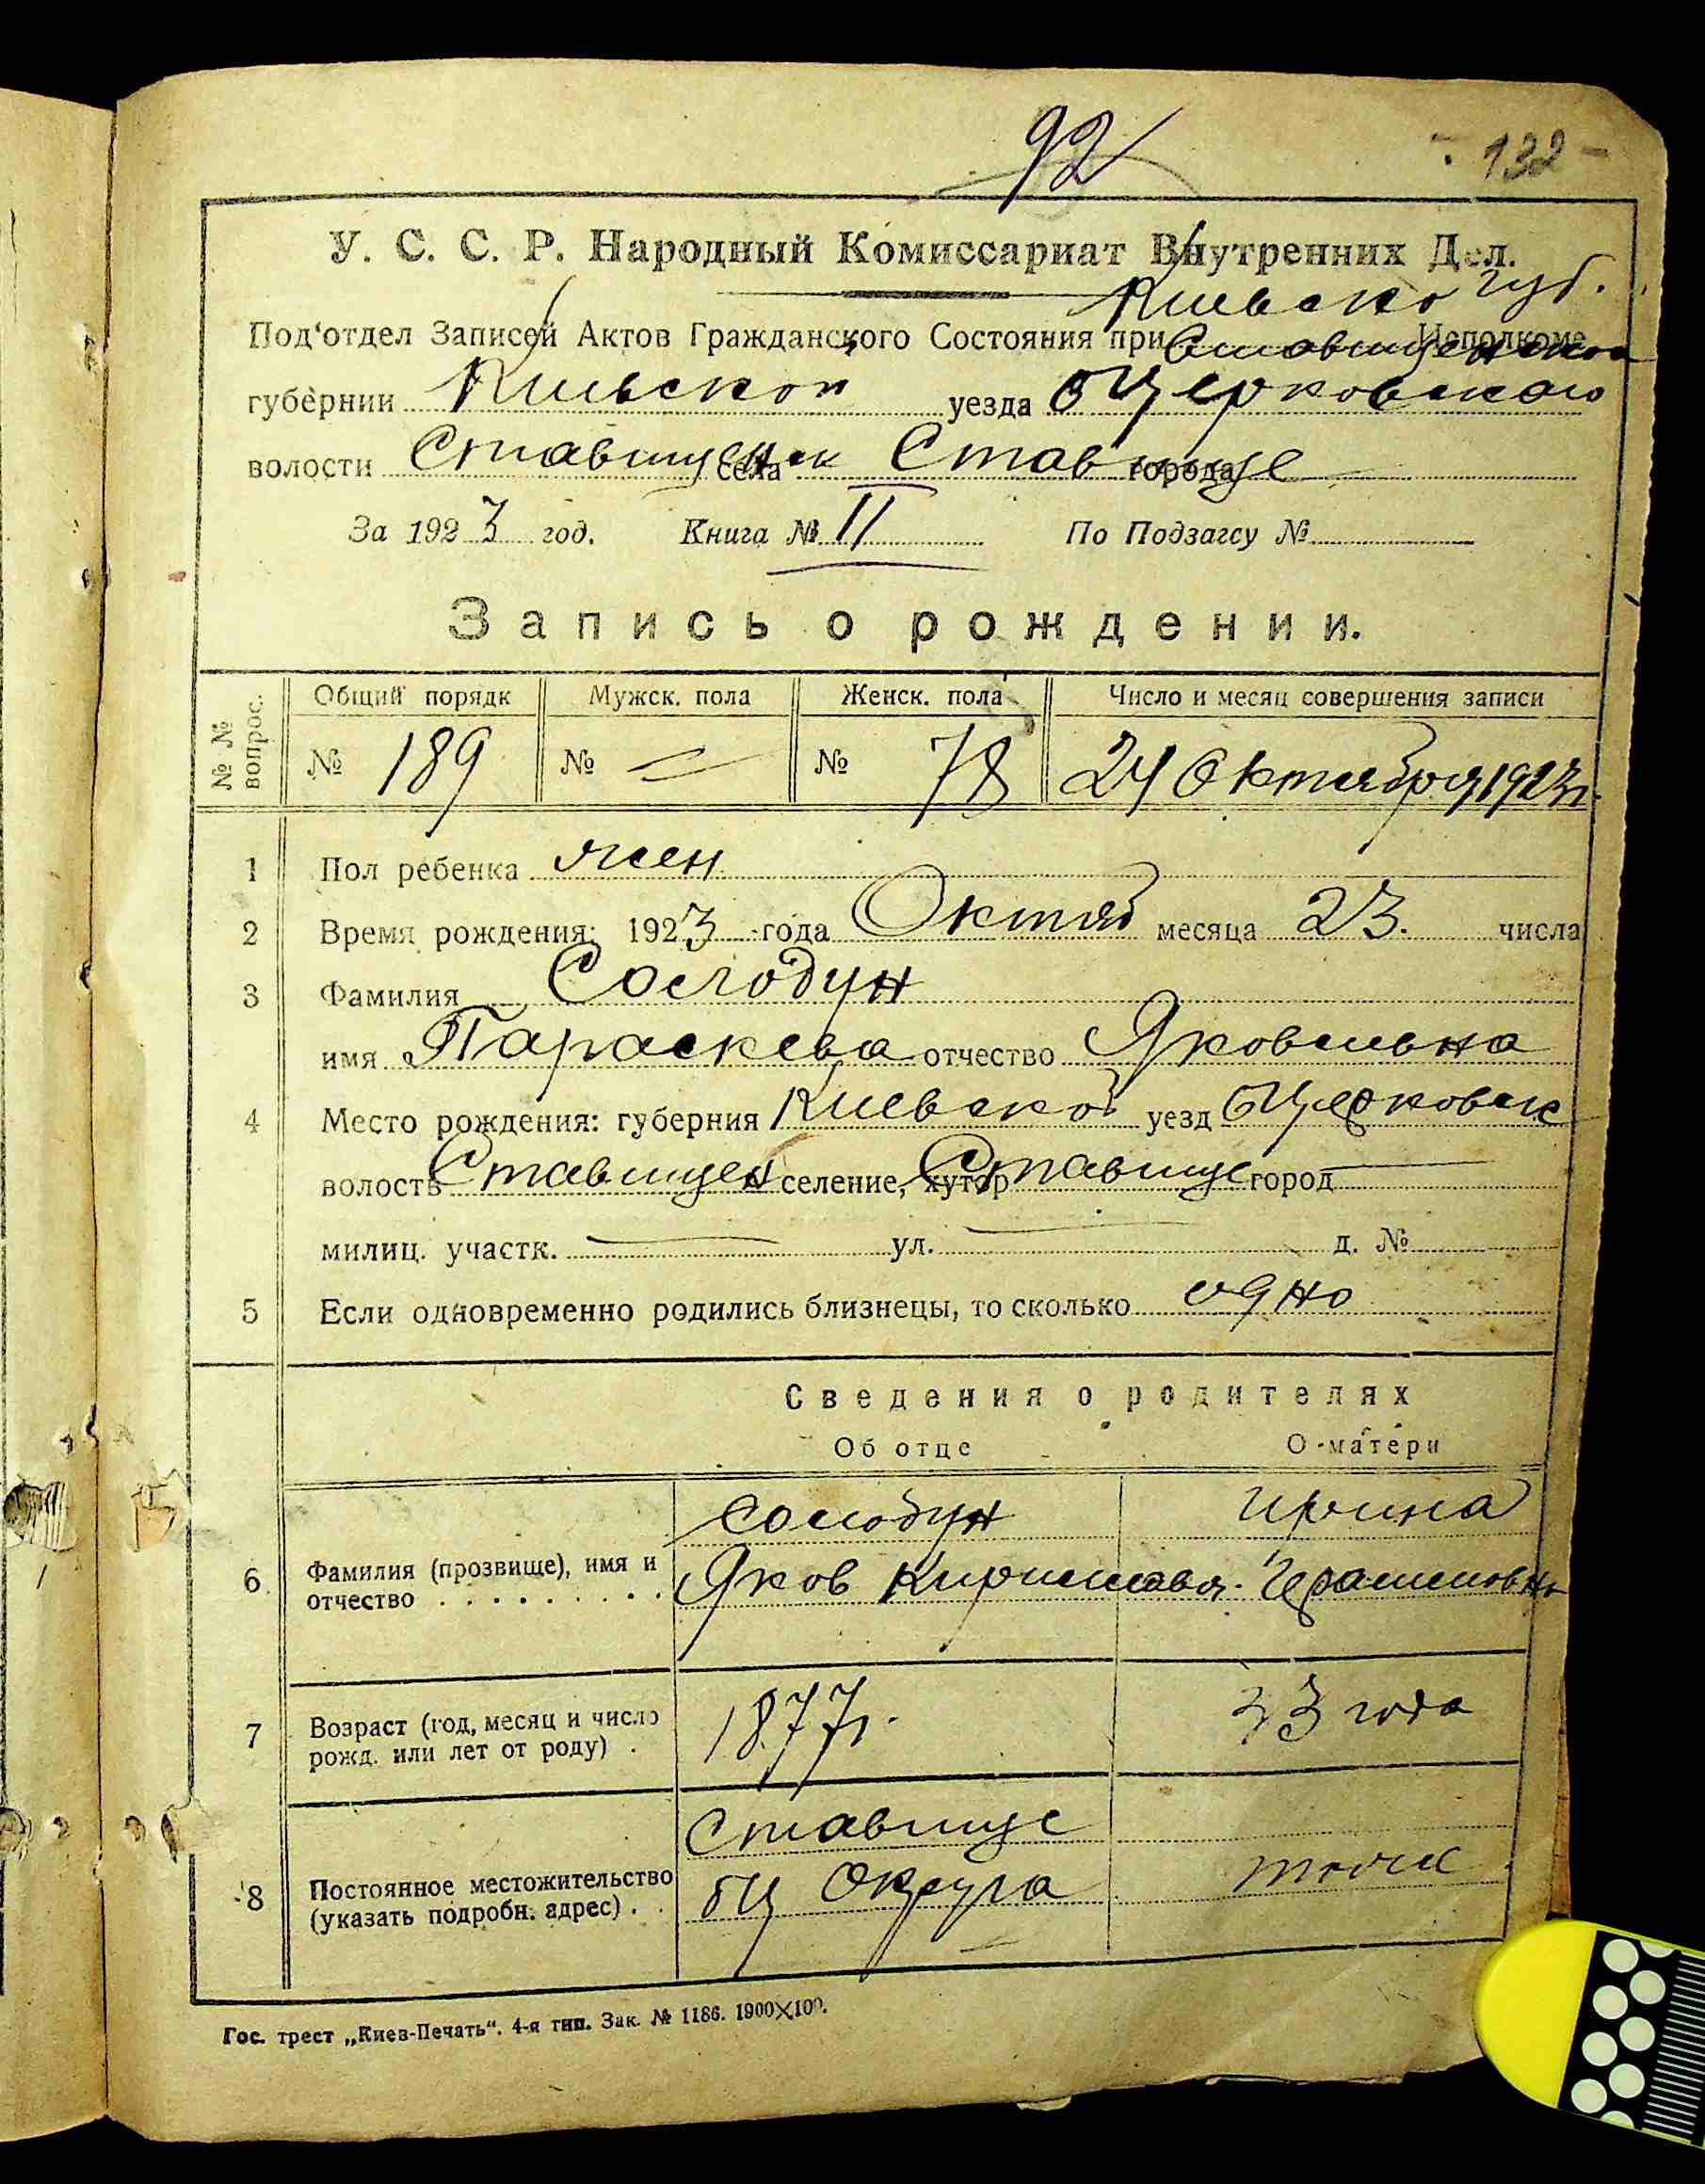 92
- 132 -
У. С. С. Р. Народный Комиссариат Внутренних Дел.
Киевско губ.
Под'отдел Записей Актов Гражданского Состояния при Исполкоме
губернии Киевской уезда бЦерковского
волости Ставищенск села Ставище города
За 1923 год. Книга № II По Подзагсу №
Запись о рождении.
№ № вопрос. Общий порядк Мужск. пола Женск. пола Число и месяц совершения записи
№ 189 № = № 78 24 Октября 1923г.
1 Пол ребенка жен
2 Время рождения: 1923 года Октяб месяца 23. числа
3 Фамилия Солодун
имя Параскева отчество Яковльвна
4 Место рождения: губерния Киевской уезд бЦерковск
волость Ставищен селение, хутор Ставище город
милиц. участк. ул. д. №
5 Если одновременно родились близнецы, то сколько одно
Сведения о родителях
Об отце О матери
Солодун Ирина
6 Фамилия (прозвище), имя и отчество Яков
7 Возраст (год, месяц и число рожд. или лет от роду) 1877г. 33 года
Ставище
8 Постоянное местожительство (указать подробн. адрес) бЦ Округа тоже
Гос. трест „Киев-Печать“. 4-я тип. Зак. № 1186. 1900×100.